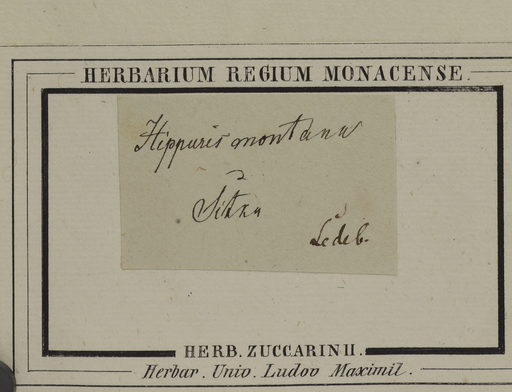 HERBARIUM REGIUM MONACENSE.
Hippuris montana
Sitka
Ledeb.
HERB. ZUCCARINII.
Herbar. Univ. Ludov Maximil.